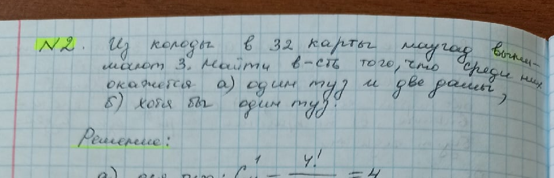 №2. Из колоды в 32 карты наугад выни-
мают 3. Найти в-сть того, что среди них
окажется а) один туз и две дамы,
б) хотя бы один туз.
Решение:
а) C 1 4 = 4! = 4